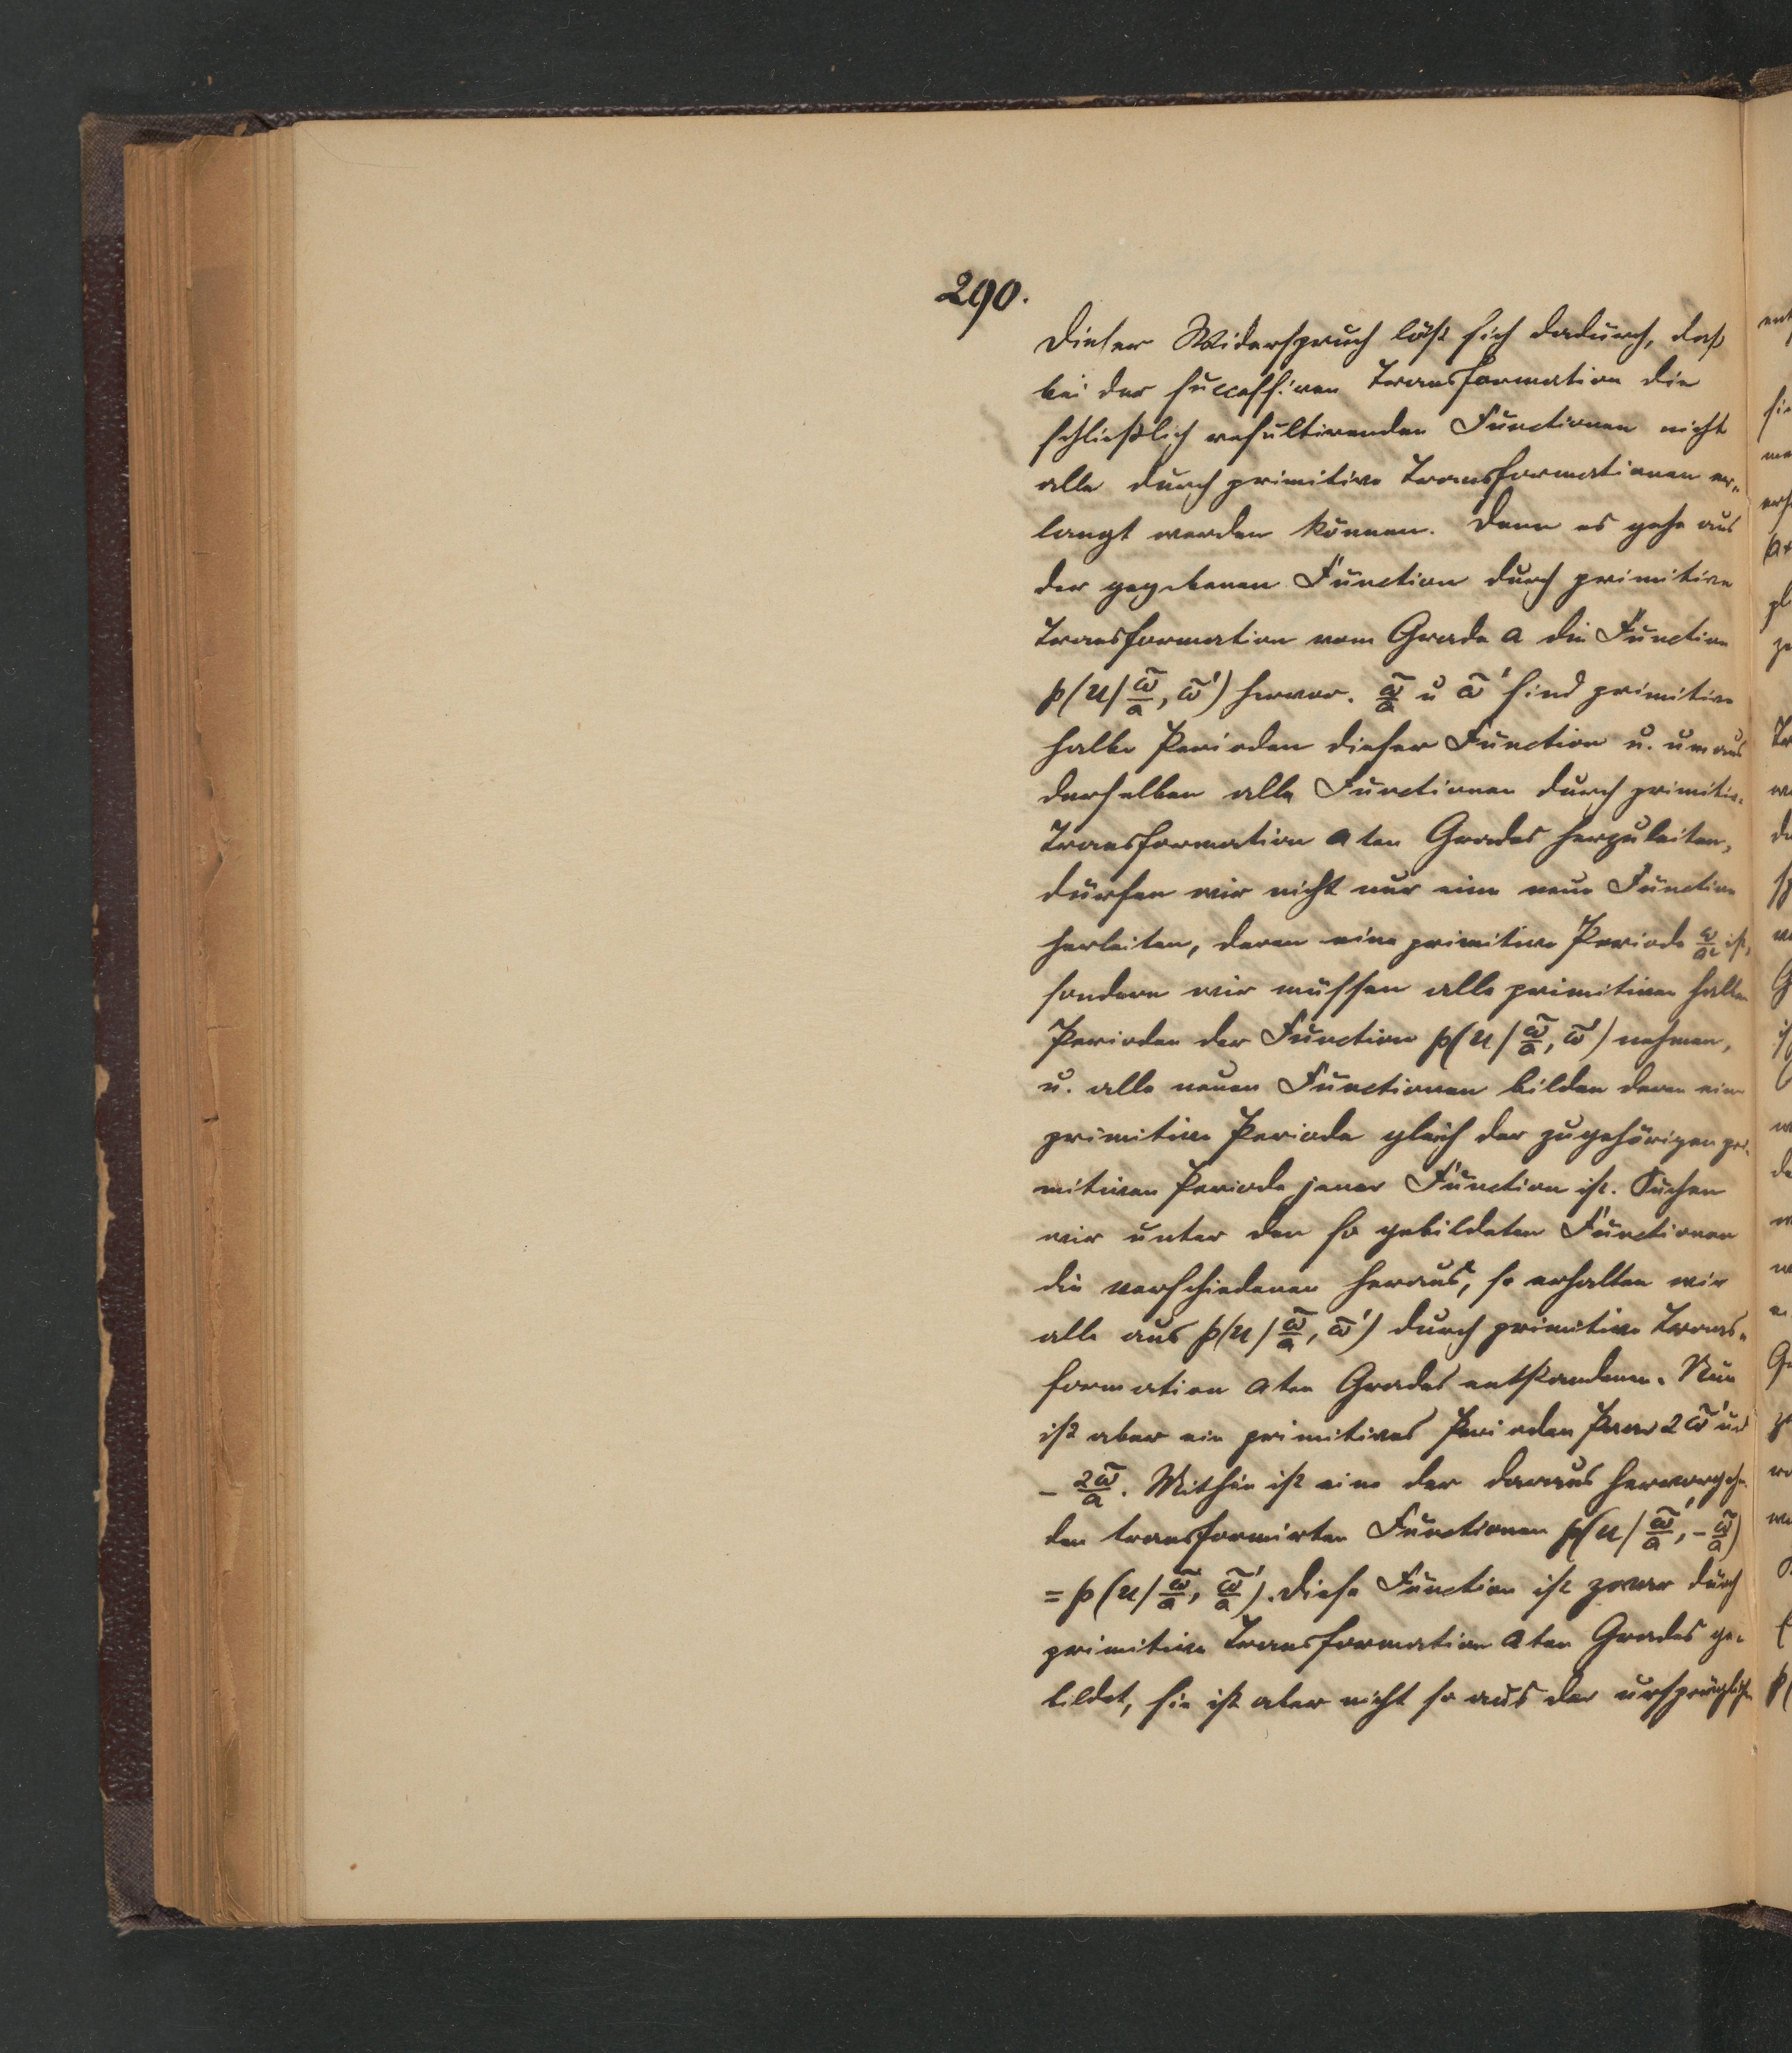 290.
Dieser Widerspruch löst sich dadurch, daß
bei der successiven Transformation die
schließlich resultirenden Functionen nicht
alle durch primitive Transformationen er-
langt werden können. Denn es gehe aus
der gegebenen Function durch primitive
Transformation vom Grade a die Function
℘(u|ω̃/a, ω̃') hervor. ω̃/a u ω̃' sind primitive
halbe Perioden dieser Function u. um aus
derselben alle Functionen durch primitive
Transformation aten Grades herzuleiten,
dürfen wir nicht nur eine neue Function
herleiten, deren eine primitive Periode ω/a² ist,
sondern wir müssen alle primitiven halben
Perioden der Function ℘(u|ω̃/a, ω̃') nehmen,
u. alle neuen Functionen bilden deren eine
primitive Periode gleich der zugehörigen pri-
mitiven Periode jener Function ist. Suchen
wir unter den so gebildeten Functionen
die verschiedenen heraus, so erhalten wir
alle aus ℘(u|ω̃/a, ω̃') durch primitive Trans-
formation aten Grades entstandenen. Nun
ist aber ein primitives Perioden Paar 2ω̃' und
- 2ω̃/a. Mithin ist eine der daraus hervorgehen
den transformirten Functionen ℘(u|ω̃'/a, -ω̃/a)
= ℘(u|ω̃/a, ω̃'/a). Diese Function ist zwar durch
primitive Transformation aten Grades ge-
bildet, sie ist aber nicht so aus der ursprünglichen